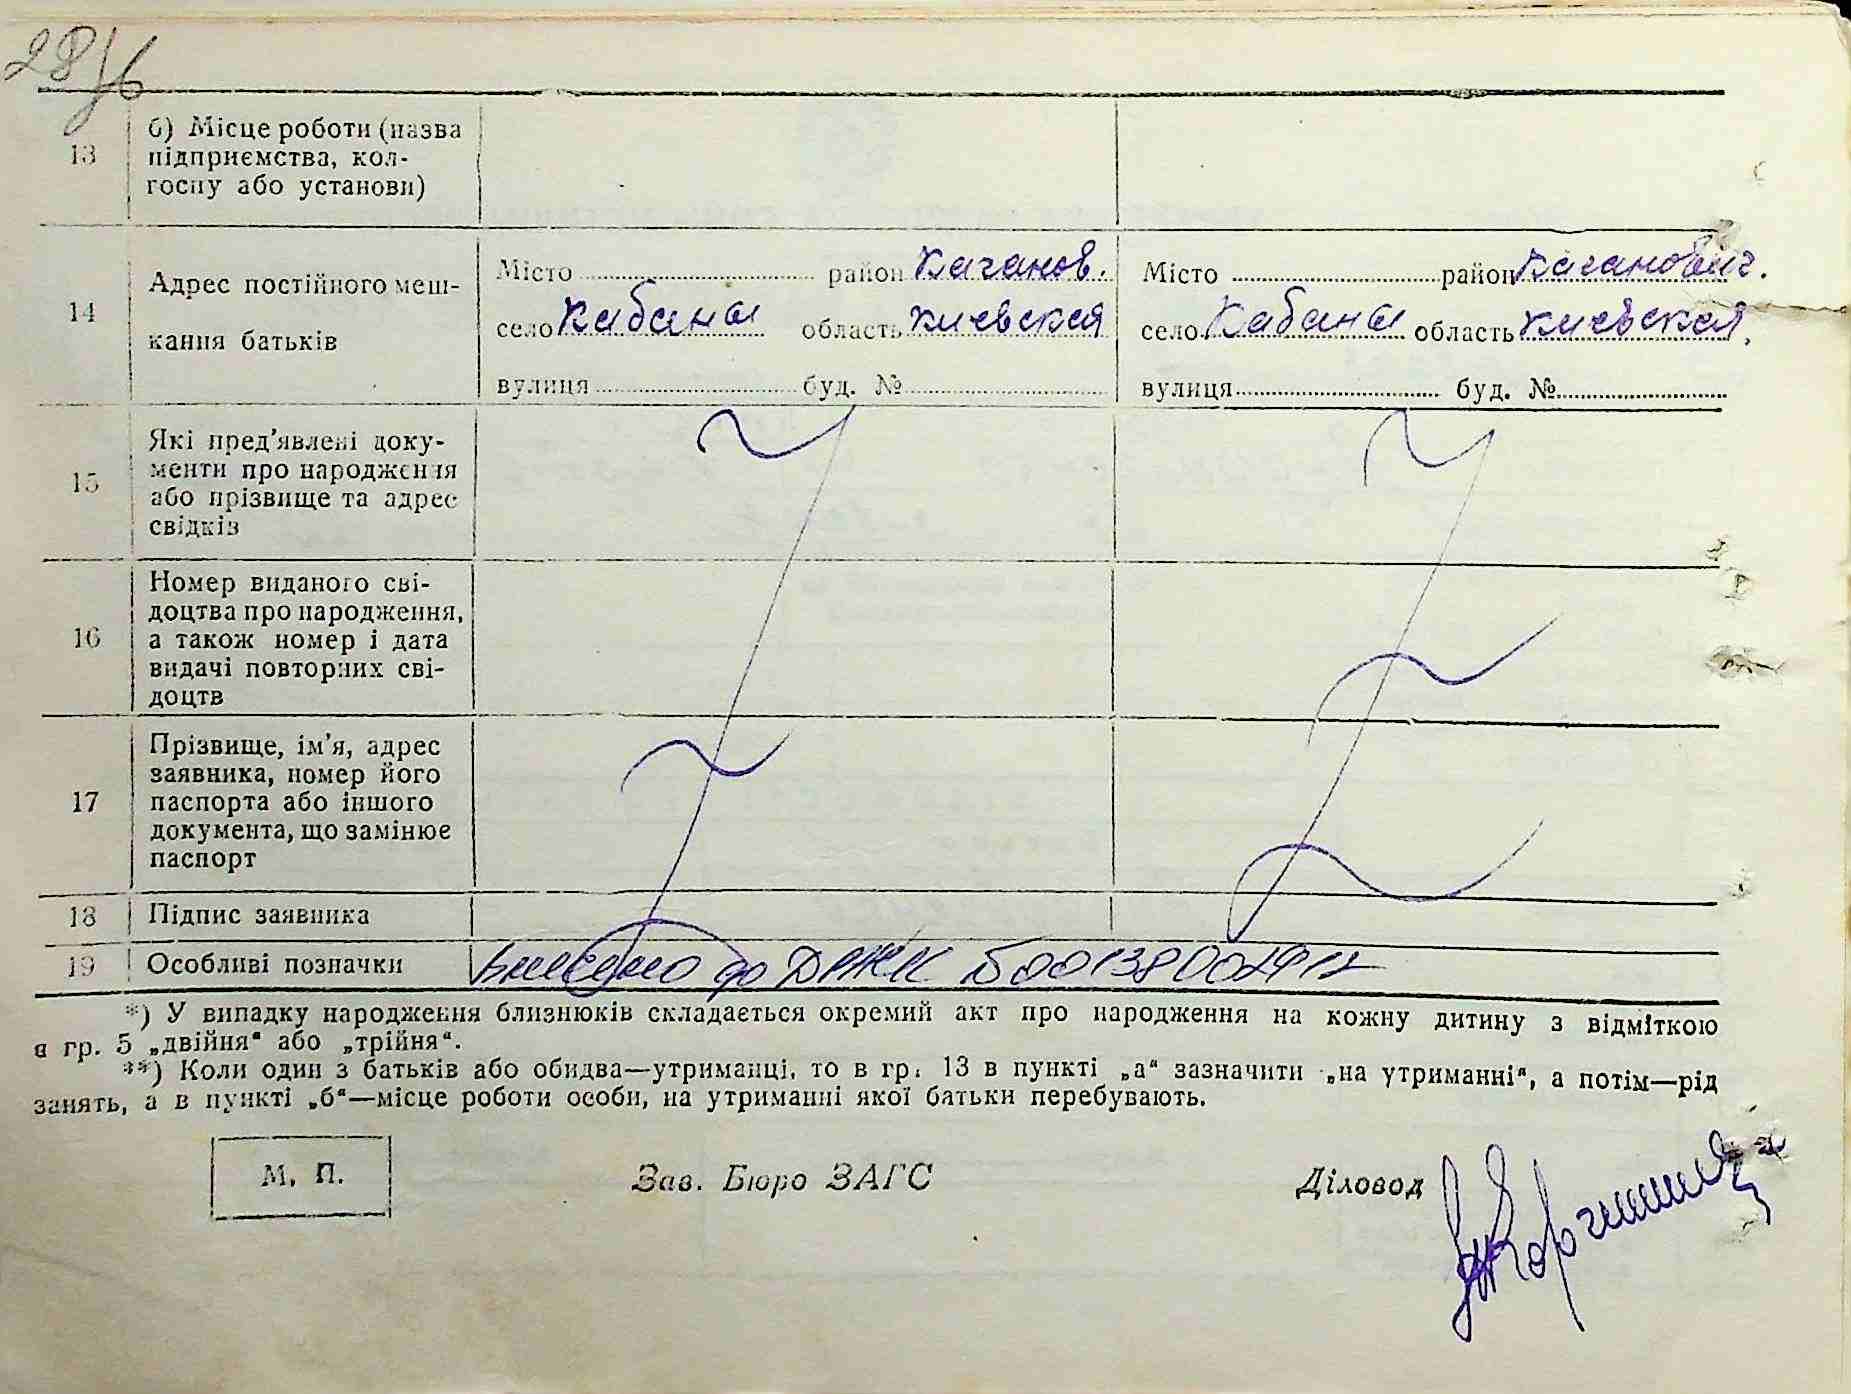 28/6
13
б) Місце роботи (назва
підприємства, кол-
госпу або установи)
14
Адрес постійного меш-
кання батьків
Місто район Каганов.
село Кабаны область киевская
вулиця буд. №
Місто район Каганович.
село Кабаны область киевская.
вулиця буд. №
15
Які пред'явлені доку-
менти про народження
або прізвище та адрес
свідків
16
Номер виданого сві-
доцтва про народження,
а також номер і дата
видачі повторних сві-
доцтв
17
Прізвище, ім'я, адрес
заявника, номер його
паспорта або іншого
документа, що замінює
паспорт
18
Підпис заявника
19
Особливі позначки
Внесено до ДРАЦС
*) У випадку народження близнюків складається окремий акт про народження на кожну дитину з відміткою
в гр. 5 „двійня“ або „трійня“.
**) Коли один з батьків або обидва—утриманці, то в гр. 13 в пункті „а“ зазначити „на утриманні“, а потім—рід
занять, а в пункті „б“—місце роботи особи, на утриманні якої батьки перебувають.
М. П.
Зав. Бюро ЗАГС
Діловод